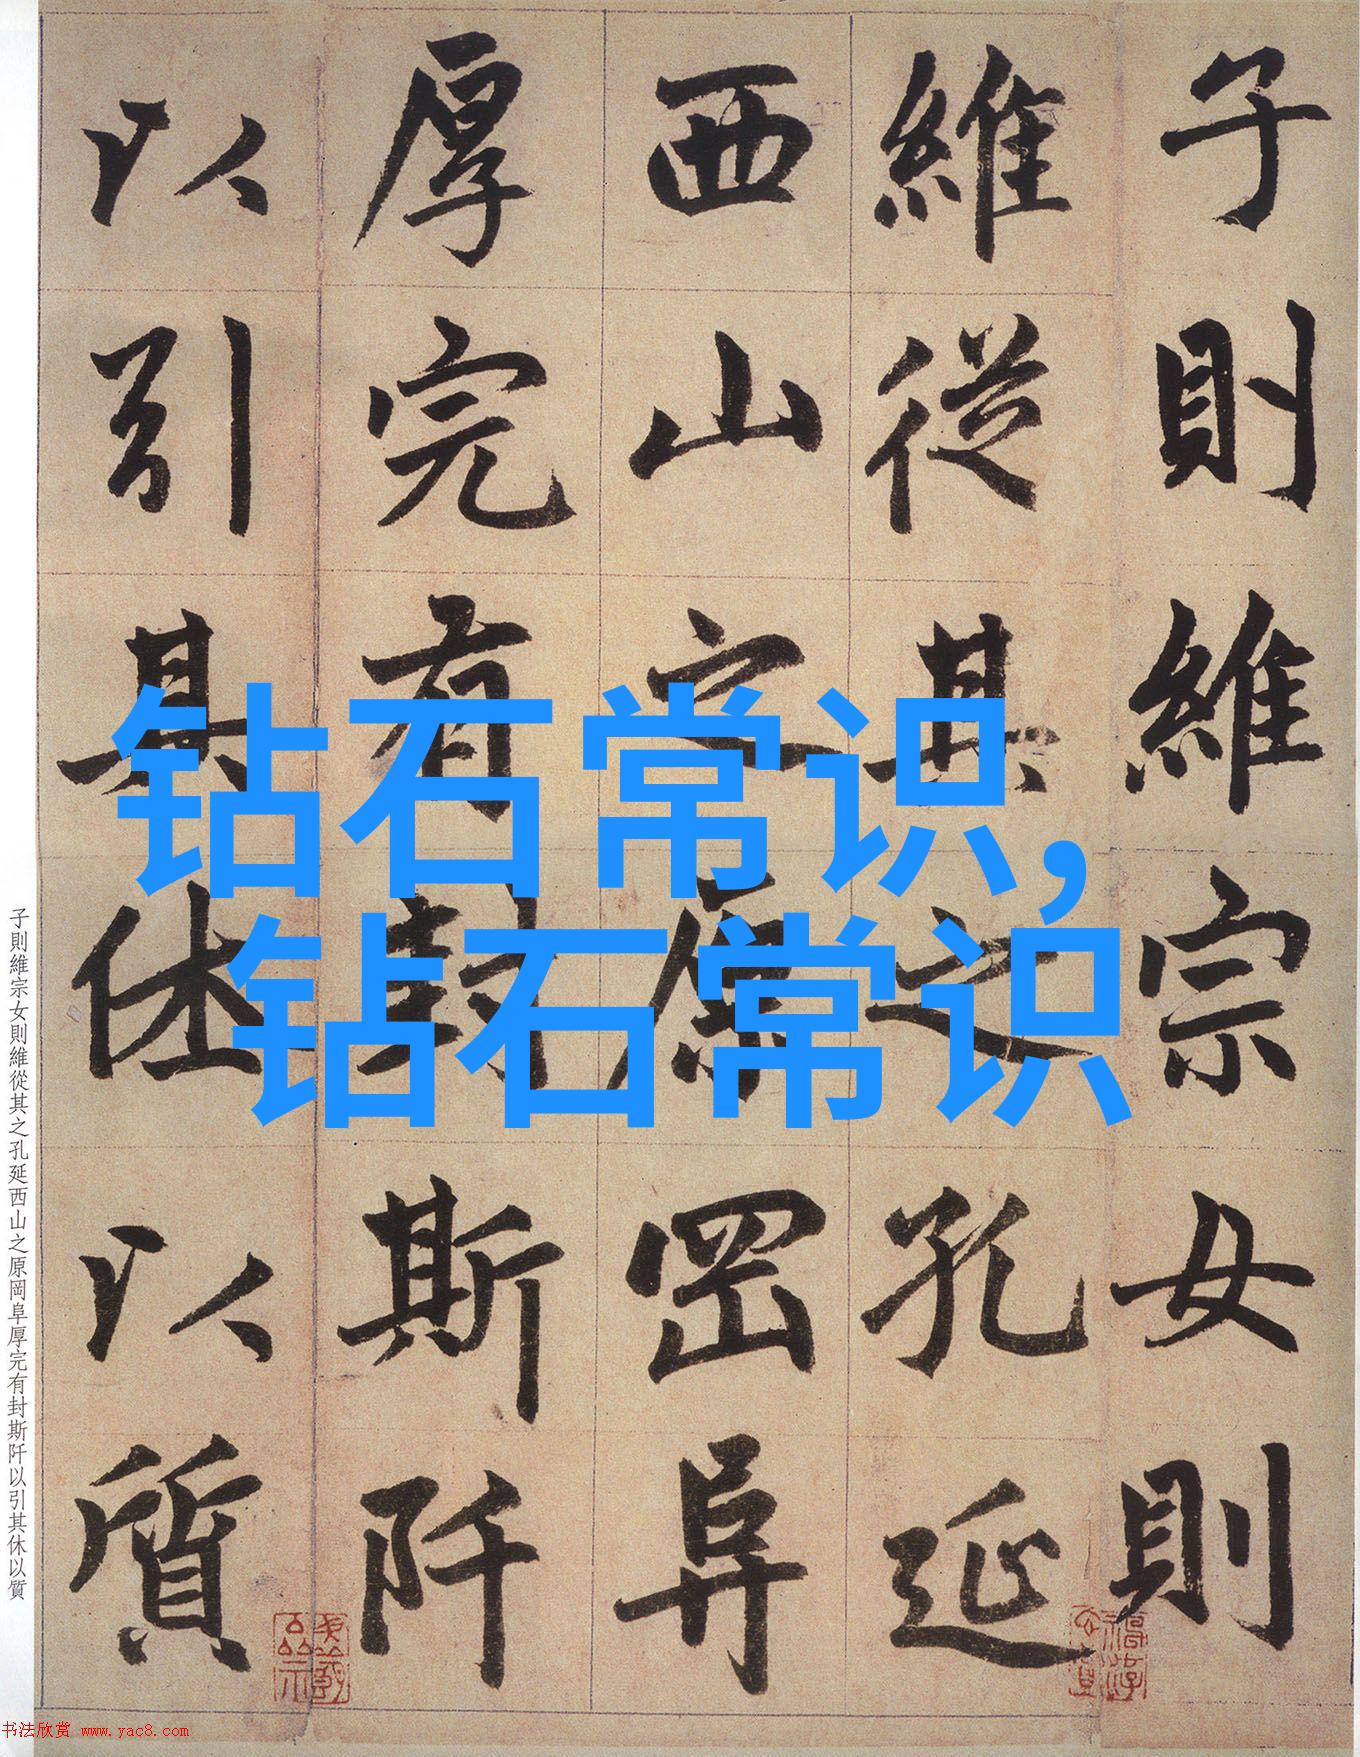 子則維宗女則
維從其之孔延
西山之原岡阜
厚完有封斯阡
以引其休以質
钻石常识,
钻石常识
子則維宗女則維從其之孔延西山之原岡阜厚完有封斯阡以引其休以質
书法欣赏 www.yac8.com